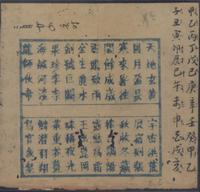 甲乙丙丁戊己庚辛壬癸甲乙
子丑寅卯辰巳午未申酉戌亥
天地玄黃
宇宙洪荒
日月盈昃
辰宿列張
寒來暑往
秋收冬藏
閏餘成歲
雲騰致雨
露結為霜
金生麗水
玉出崑崗
劍號巨闕
珠稱夜光
海鹹河淡
鱗潛羽翔
龍師火帝
鳥官人皇